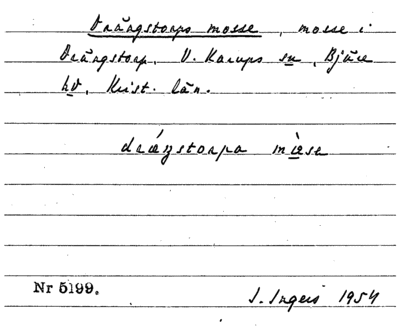 Drängstorps mosse, mosse i
Drängstorp, V. Karups sn, Bjäre
hd, Krist. län.
dräŋstorpa mòsse
Nr 5199.
I. Ingers 1954